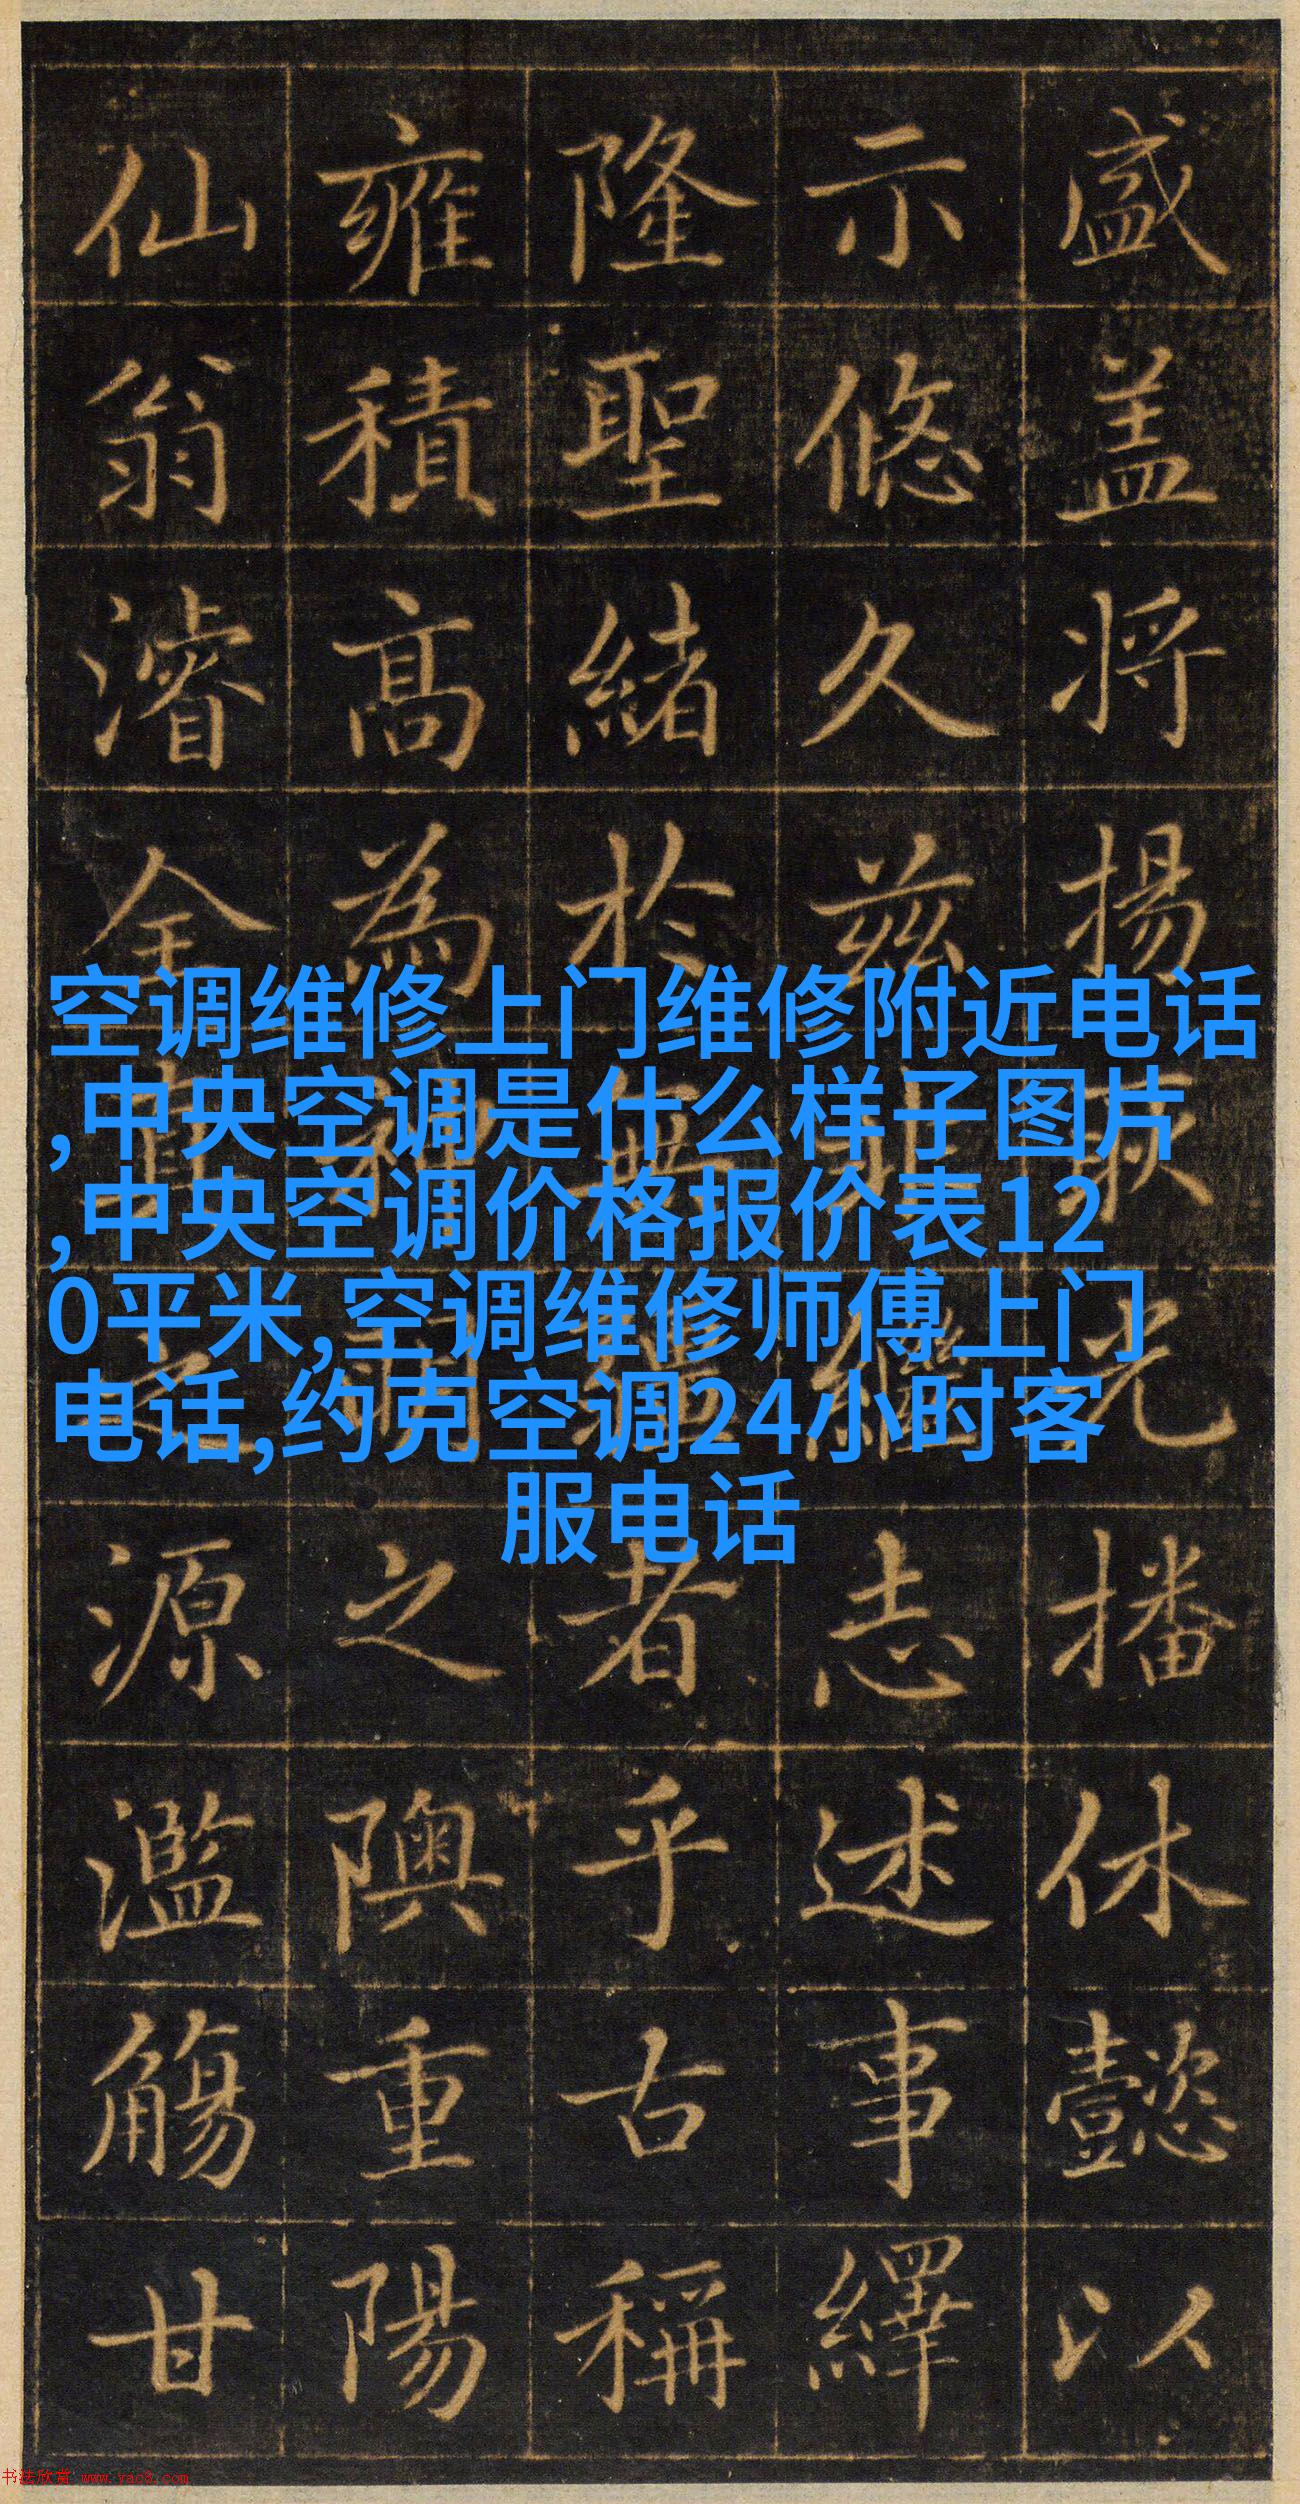 盛盖将揚耿光播休懿以
示悠久茲非繼志述事繹
隆聖緒於無疆者乎古稱
雍積高為神明之隩重陽
仙翁濬全真之源濫觴甘
空调维修上门维修附近电话
,中央空调是什么样子图片
,中央空调价格报价表12
0平米,空调维修师傅上门
电话,约克空调24小时客
服电话
书法欣赏 www.yac8.com